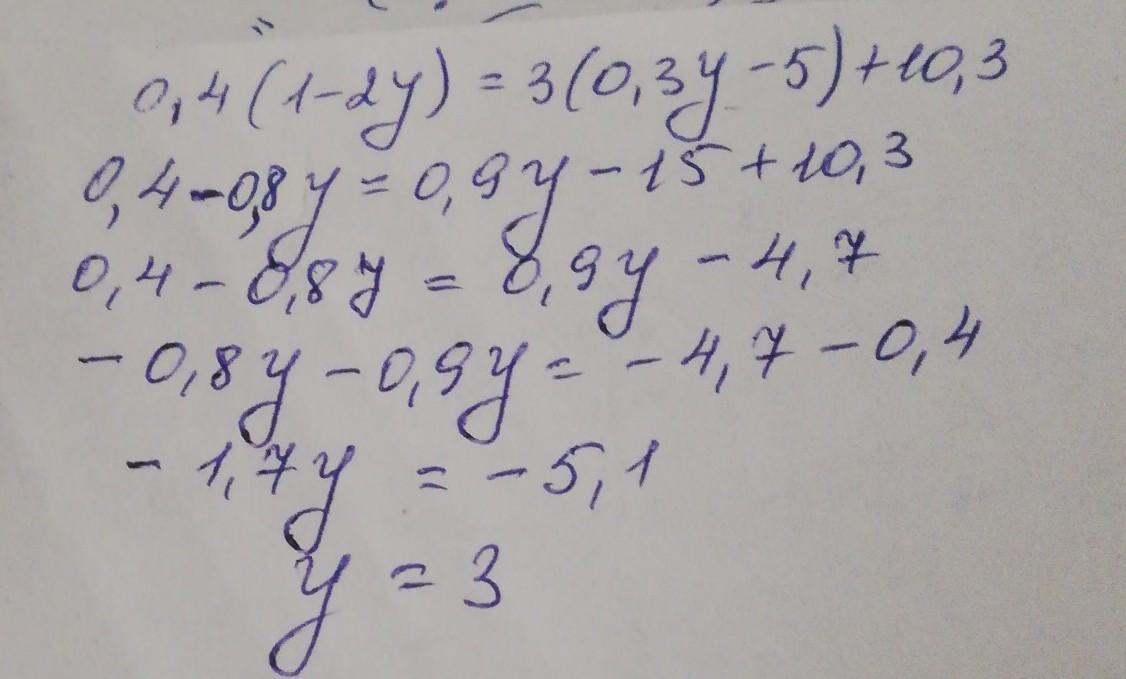 0,4(1-2y) = 3(0,3y-5)+10,3
0,4-0,8y = 0,9y-15+10,3
0,4-0,8y = 0,9y-4,7
-0,8y-0,9y = -4,7-0,4
-1,7y = -5,1
y = 3